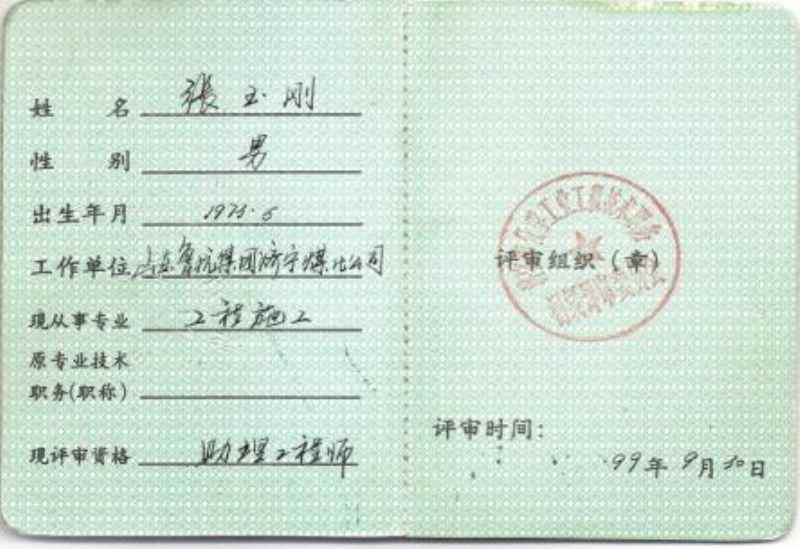 姓 名 張玉刚
性 别 男
出生年月
工作单位 山东鲁抗集团济宁煤化公司
现从事专业 工程施工
原专业技术
职务(职称)
现评审资格 助理工程师
评审组织(章)
评审时间:
99年9月30日